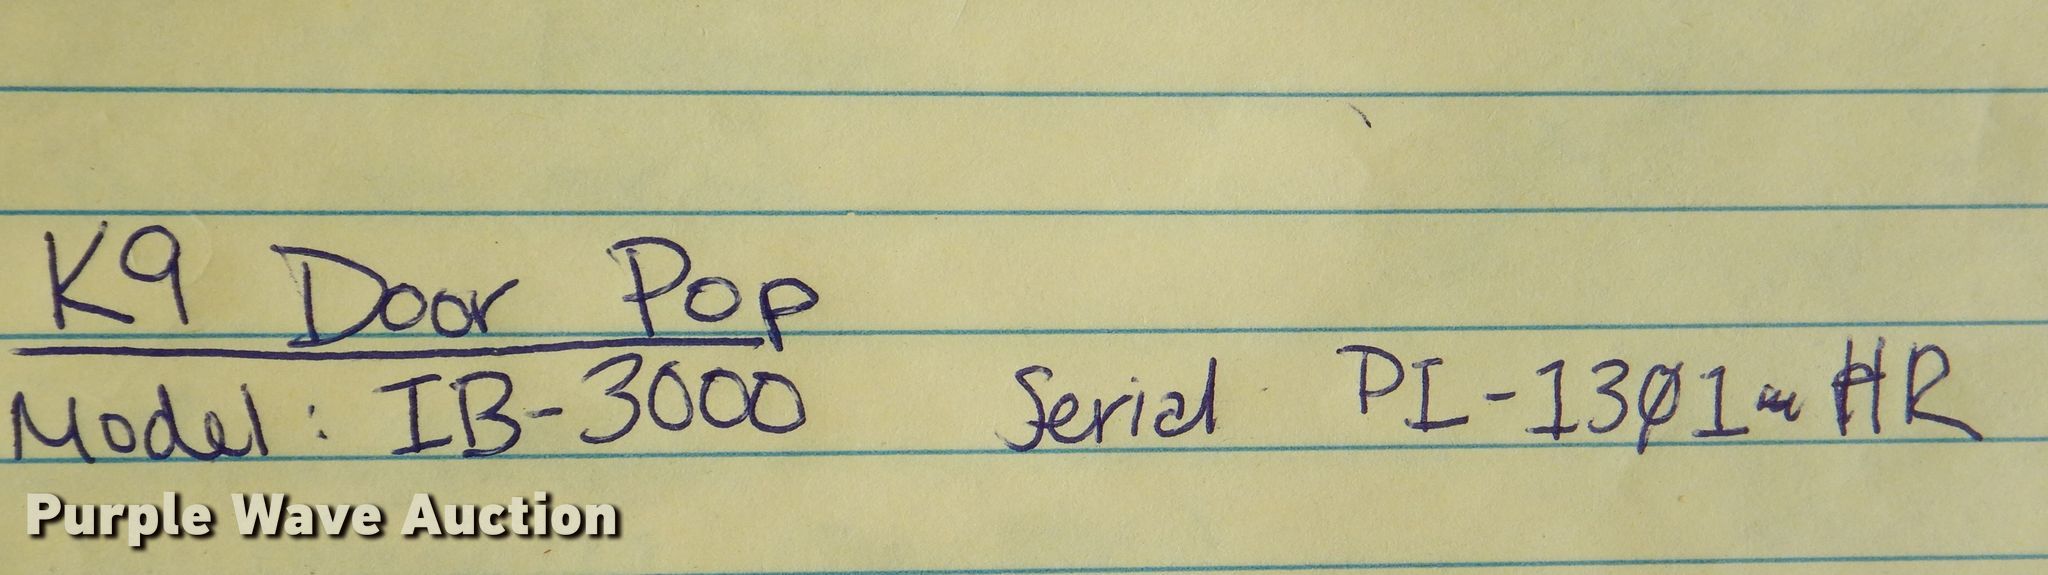 K9 Door Pop
Model: IB-3000 Serial PI-13Ø1-HR
Purple Wave Auction